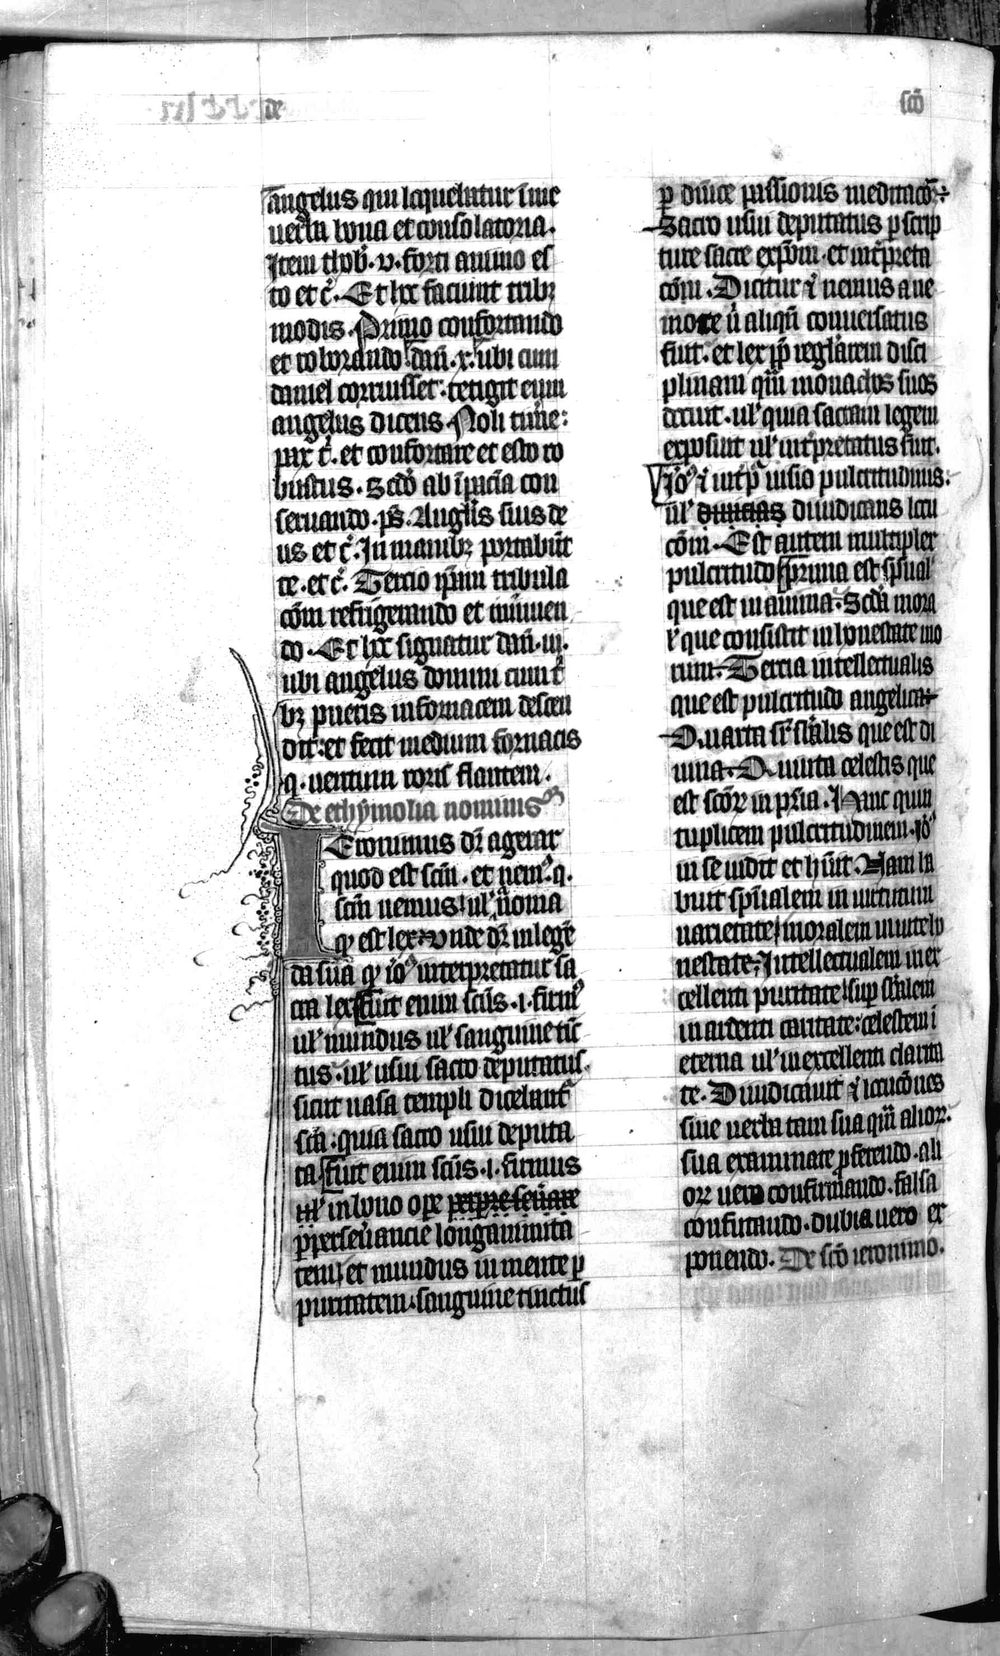 de
scō
angelus qui loquebatur ī me
uerba bona et consolatoria.
Item thob̄. v. forti animo es
to et c̄. Et hec faciunt tribȝ
modis. Primo confortando
et roborando. dań. x. ubi cum
daniel corruisset. tetigit eum
angelus dicens. Noli time:
pax t̄. et confortare et esto ro
bustus. Scdō ab īpacīa con
seruando. ps̄. Angl̄is suis de
us et c̄. In manibȝ portabūt
te. et c̄. Tercio ip̄am tribula
cōm refrigerando et minuen
do. Et hoc signatur dań. iij.
ubi angelus domini cum t̄
bȝ pueris in fornacem descen
dit: et fecit medium fornacis
q. uentum roris flantem.
De ethymolia nominis
IEronimus dr̄ a gerar
quod est scm̄. et nemꝰ. q.
scm̄ nemus: ul' noma
qȝ est lex. Vnde dr̄ in legē
da sua qȝ ioꝰ interpretatur sa
cra lex. Fuit enim scūs. i. firmꝰ
ul' mundus ul' sanguine tīc
tus. ul' usui sacro deputatus
sicut uasa templi dicebant̄
scā: quia sacro usui deputa
ta. Fuit enim scūs. i. firmus
in bono ope
ꝑ perseūancie longanimita
tem. et mundus in mente ꝑ
puritatem. sanguine tinctus
ꝑ dn̄ice passionis meditacōꝫ.
Sacro usui deputatus ꝑ scrip
ture sacre exp̄om. et int̄preta
cōm. Dicitur ꝫ nemus a ne
more ū aliqn̄ conuersatus
fuit. et lex ꝓp̄ reglarem disci
plinam qm̄ monachos suos
docuit. ul' quia sacram legem
exposuit ul' int̄pretatus fuit.
Ioꝰ ꝫ int̄p̄ uisio pulcritudinis.
ul' diuidicans locu
cōm. Est autem multiplex
pulcritudo. prima est spūal'
que est in anima. Scdā mora
l' que consistit in honestate mo
rum. Tercia intellectualis
que est pulcritudo angelica.
Quarta sr̄ sbālis que est di
uina. Quinta celestis que
est scōꝝ in pr̄ia. Hanc quin
tuplicem pulcritudinem. ioꝰ
in se uidit et hūit. Nam ha
buit spūalem in uirtutum
uarietate. moralem in uite ho
nestate. Intellectualem in ex
cellenti puritate. sup sbālem
in ardenti caritate: celestem ī
eterna ul' in excellenti clarita
te. Diuidicauit ꝫ locucōnes
siue uerba tam sua qm̄ alioꝝ.
sua examinate ꝓferendo. ali
oꝝ uero confirmando. falsa
confutando. dubia uero ex
ponendo. De scō ieronimo.